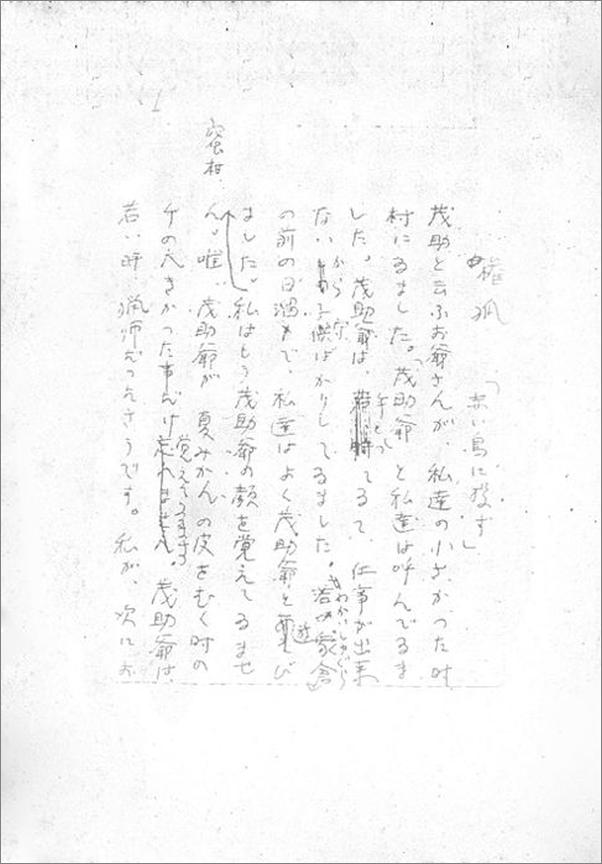 権狐
「赤い鳥に投ず」
茂助と云ふお爺さんが、私達の小さかった時
村にゐました。「茂助爺」と私達は呼んでゐま
した。茂助爺は、年とってゐて、仕事が出来
ないから子守ばかりしてゐました。若衆倉
の前の日溜で、私達はよく茂助爺と遊び
ました。私はもう茂助爺の顔を覚えてゐませ
ん。唯、茂助爺が、夏みかんの皮をむく時の
手の大きかった事だけ覚えてゐます。茂助爺は、
若い時、猟師だったさうです。私が、次にお
蜜柑